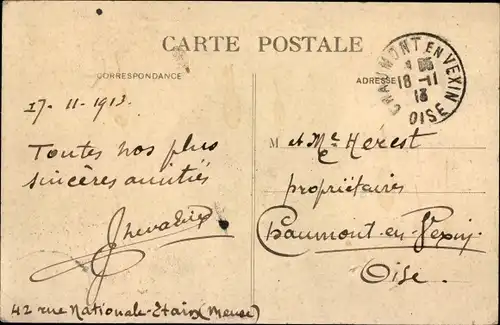 CARTE POSTALE
CORRESPONDANCE
ADRESSE
CHAUMONT EN VEXIN
18 -11
13
OISE
17-11-1913.
Toutes nos plus
sincères amitiés
Chevalier
42 rue Nationale-Etain (Meuse)
M et Me Herest
propriétaires
Chaumont-en-Vexin
Oise.